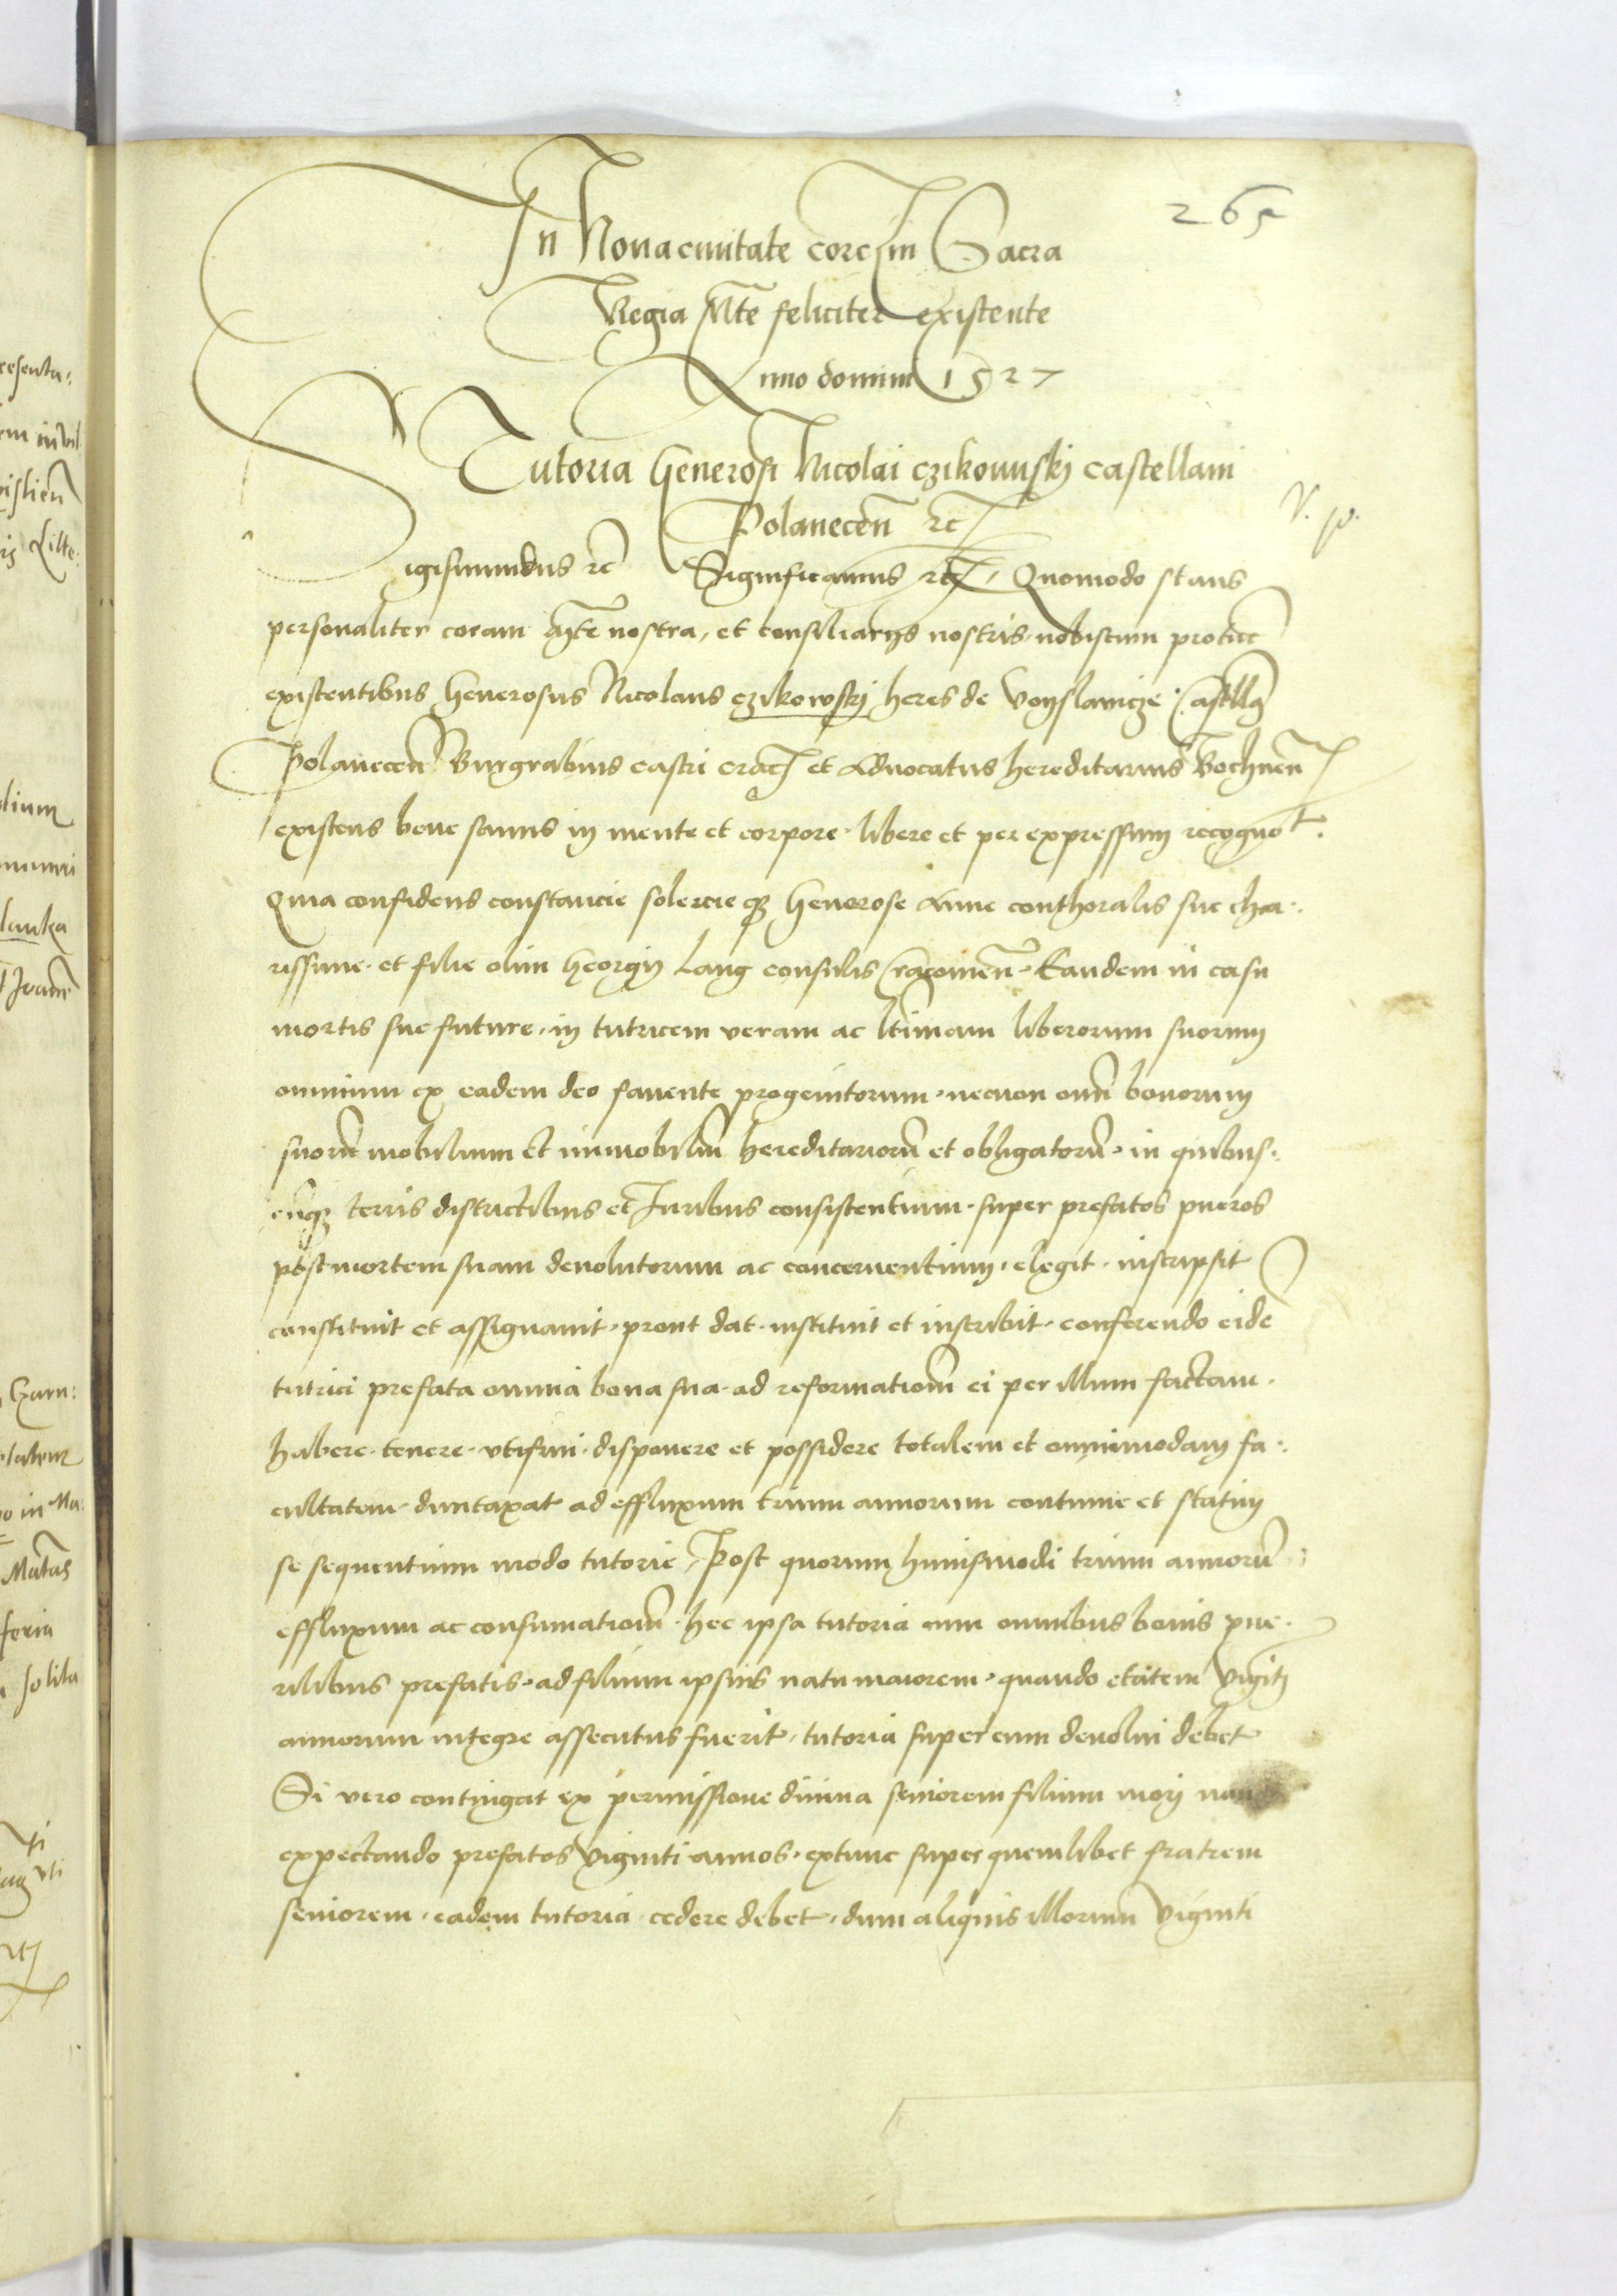 265
In Nova civitate Corczin Sacra
Regia Mte feliciter existente
Anno domini 1527
Tutoria Generosi Nicolai czikowski castellani
Polanecen̄ ꝛc̄
V. p.
Sigismundus ꝛc̄ Significamus ꝛc̄, Quomodo stans
personaliter coram Mte nostra, et consiliarijs nostris nobiscum protūc
existentibus Generosus Nicolaus czikowskj heres de Voyslawicze Castllꝰ
Polanecen̄ Burgrabius castri Crac̄ et Advocatus hereditarius Bochnen̄
existens bene sanus in mente et corpore libere et per expressum recognot.
Quia confidens constancie solercieqꝫ Generose Anne conthoralis sue cha:
rissime et filie olim Georgij Lang consulis Cracovien̄ Eandem in casu
mortis sue future, in tutricem veram ac ltimam liberorum suorum
omnium ex eadem deo favente progenitorum, necnon om̄ bonorum
suorū mobilium et immobiliū hereditariorū et obligatorū, in quibus:
cūqꝫ terris districtibus et Iuribus consistentium, super prefatos pueros
post mortem suam devolutorum ac concernentium, elegit, inscripsit
constituit et assignavit, prout dat, instituit et inscribit, conferendo eidē
tutrici prefata omnia bona sua ad reformationē ei per illum factam,
habere, tenere, utifrui, disponere et possidere totalem et omnimodam fa:
cultatem, duntaxat ad effluxum trium annorum continue et statim
se sequentium modo tutorie, Post quorum huiusmodi trium annorū
effluxum ac consumationē, hec ipsa tutoria cum omnibus bonis pue:
rilibus prefatis, ad filium ipsius natu maiorem, quando etatem Viginti
annorum integre assecutus fuerit, tutoria super eum devolui debet
Si vero contingat ex permissione divina seniorem filium mori non
expectando prefatos Viginti annos, extunc super quemlibet fratrem
seniorem, eadem tutoria cedere debet, dum aliquis illorum Viginti